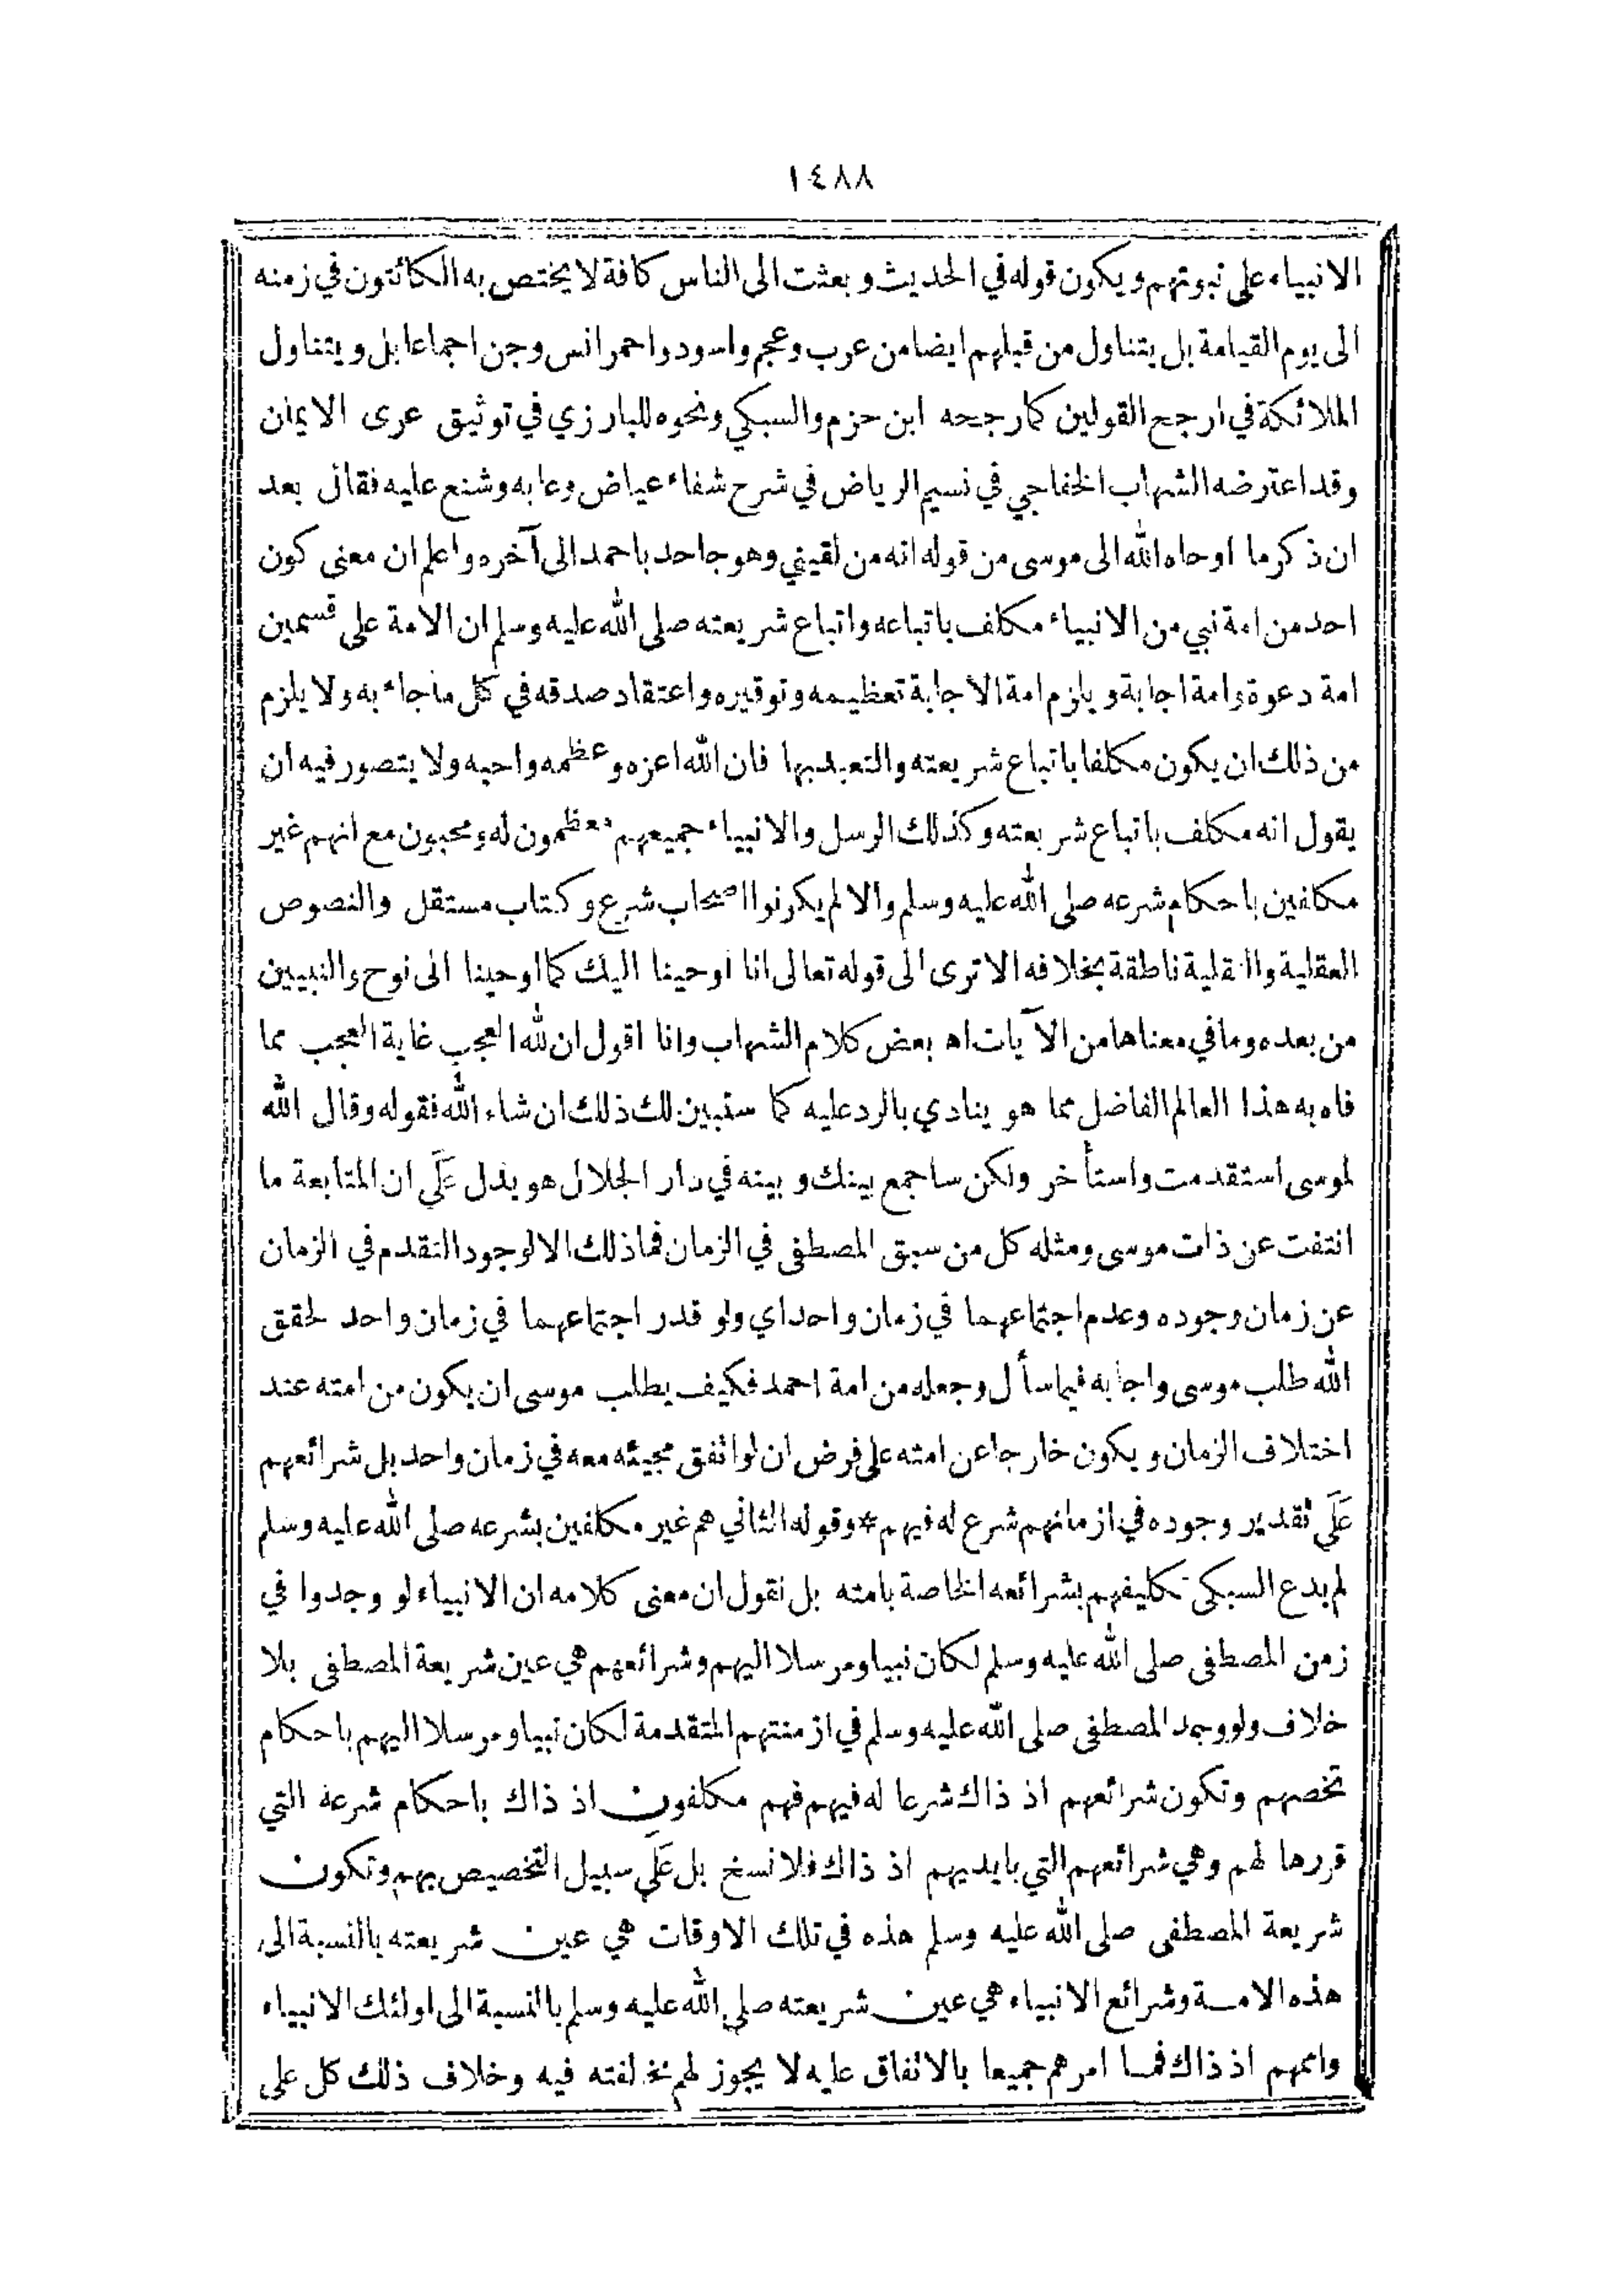 ١٤٨٨
الانبياء على نبوتهم ويكون قوله في الحديث وبعثت الى الناس كافة لا يختص به الكائنون في زمنه
الى يوم القيامة بل يتناول من قبلهم ايضا من عرب وعجم واسود واحمر انس وجن اجماعا بل ويتناول
الملائكة في ارجح القولين كما رجحه ابن حزم والسبكي ونحوه للبارزي في توثيق عرى الايمان
وقد اعترضه الشهاب الخفاجي في نسيم الرياض في شرح شفاء عياض وعابه وشنع عليه فقال بعد
ان ذكر ما اوحاه الله الى موسى من قوله انه من لقيني وهو جاحد باحمد الى آخره واعلم ان معنى كون
احد من امة نبي من الانبياء مكلف باتباعه واتباع شريعته صلى الله عليه وسلم ان الامة على قسمين
امة دعوة وامة اجابة ويلزم امة الاجابة تعظيمه وتوقيره واعتقاد صدقه في كل ما جاء به ولا يلزم
من ذلك ان يكون مكلفا باتباع شريعته والتعبد بها فان الله اعزه وعظمه واحبه ولا يتصور فيه ان
يقول انه مكلف باتباع شريعته وكذلك الرسل والانبياء جميعهم معظمون له ومحبون مع انهم غير
مكلفين باحكام شرعه صلى الله عليه وسلم والا لم يكونوا اصحاب شرع وكتاب مستقل والنصوص
العقلية والنقلية ناطقة بخلافه الا ترى الى قوله تعالى انا اوحينا اليك كما اوحينا الى نوح والنبيين
من بعده وما في معناها من الآيات اه بعض كلام الشهاب وانا اقول ان لله العجب غاية العجب مما
فاه به هذا العالم الفاضل مما هو ينادي بالرد عليه كما ستبين لك ذلك ان شاء الله فقوله وقال الله
لموسى استقدمت واستأخر ولكن ساجمع بينك وبينه في دار الجلال هو يدل عَلَى ان المتابعة ما
انتفت عن ذات موسى ومثله كل من سبق المصطفى في الزمان فما ذلك الا لوجود التقدم في الزمان
عن زمان وجوده وعدم اجتماعهما في زمان واحد اي ولو قدر اجتماعهما في زمان واحد لحقق
الله طلب موسى واجابه فيما سأل وجعله من امة احمد فكيف يطلب موسى ان يكون من امته عند
اختلاف الزمان ويكون خارجا عن امته على فرض ان لو اتفق مجيئه معه في زمان واحد بل شرائعهم
عَلَى تقدير وجوده في ازمانهم شرع له فيهم * وقوله الثاني هم غير مكلفين بشرعه صلى الله عليه وسلم
لم يدع السبكي تكليفهم بشرائعه الخاصة بامته بل نقول ان معنى كلامه ان الانبياء لو وجدوا في
زمن المصطفى صلى الله عليه وسلم لكان نبيا ومرسلا اليهم وشرائعهم هي عين شريعة المصطفى بلا
خلاف ولو وجد المصطفى صلى الله عليه وسلم في ازمنتهم المتقدمة لكان نبيا ومرسلا اليهم باحكام
تخصهم وتكون شرائعهم اذ ذاك شرعا له فيهم فهم مكلفون اذ ذاك باحكام شرعه التي
قررها لهم وهي شرائعهم التي بايديهم اذ ذاك فلا نسخ بل عَلَى سبيل التخصيص بهم وتكون
شريعة المصطفى صلى الله عليه وسلم هذه في تلك الاوقات هي عين شريعته بالنسبة الى
هذه الامة وشرائع الانبياء هي عين شريعته صلى الله عليه وسلم بالنسبة الى اولئك الانبياء
واممهم اذ ذاك فما امرهم جميعا بالاتفاق عليه لا يجوز لهم مخالفته فيه وخلاف ذلك كل على